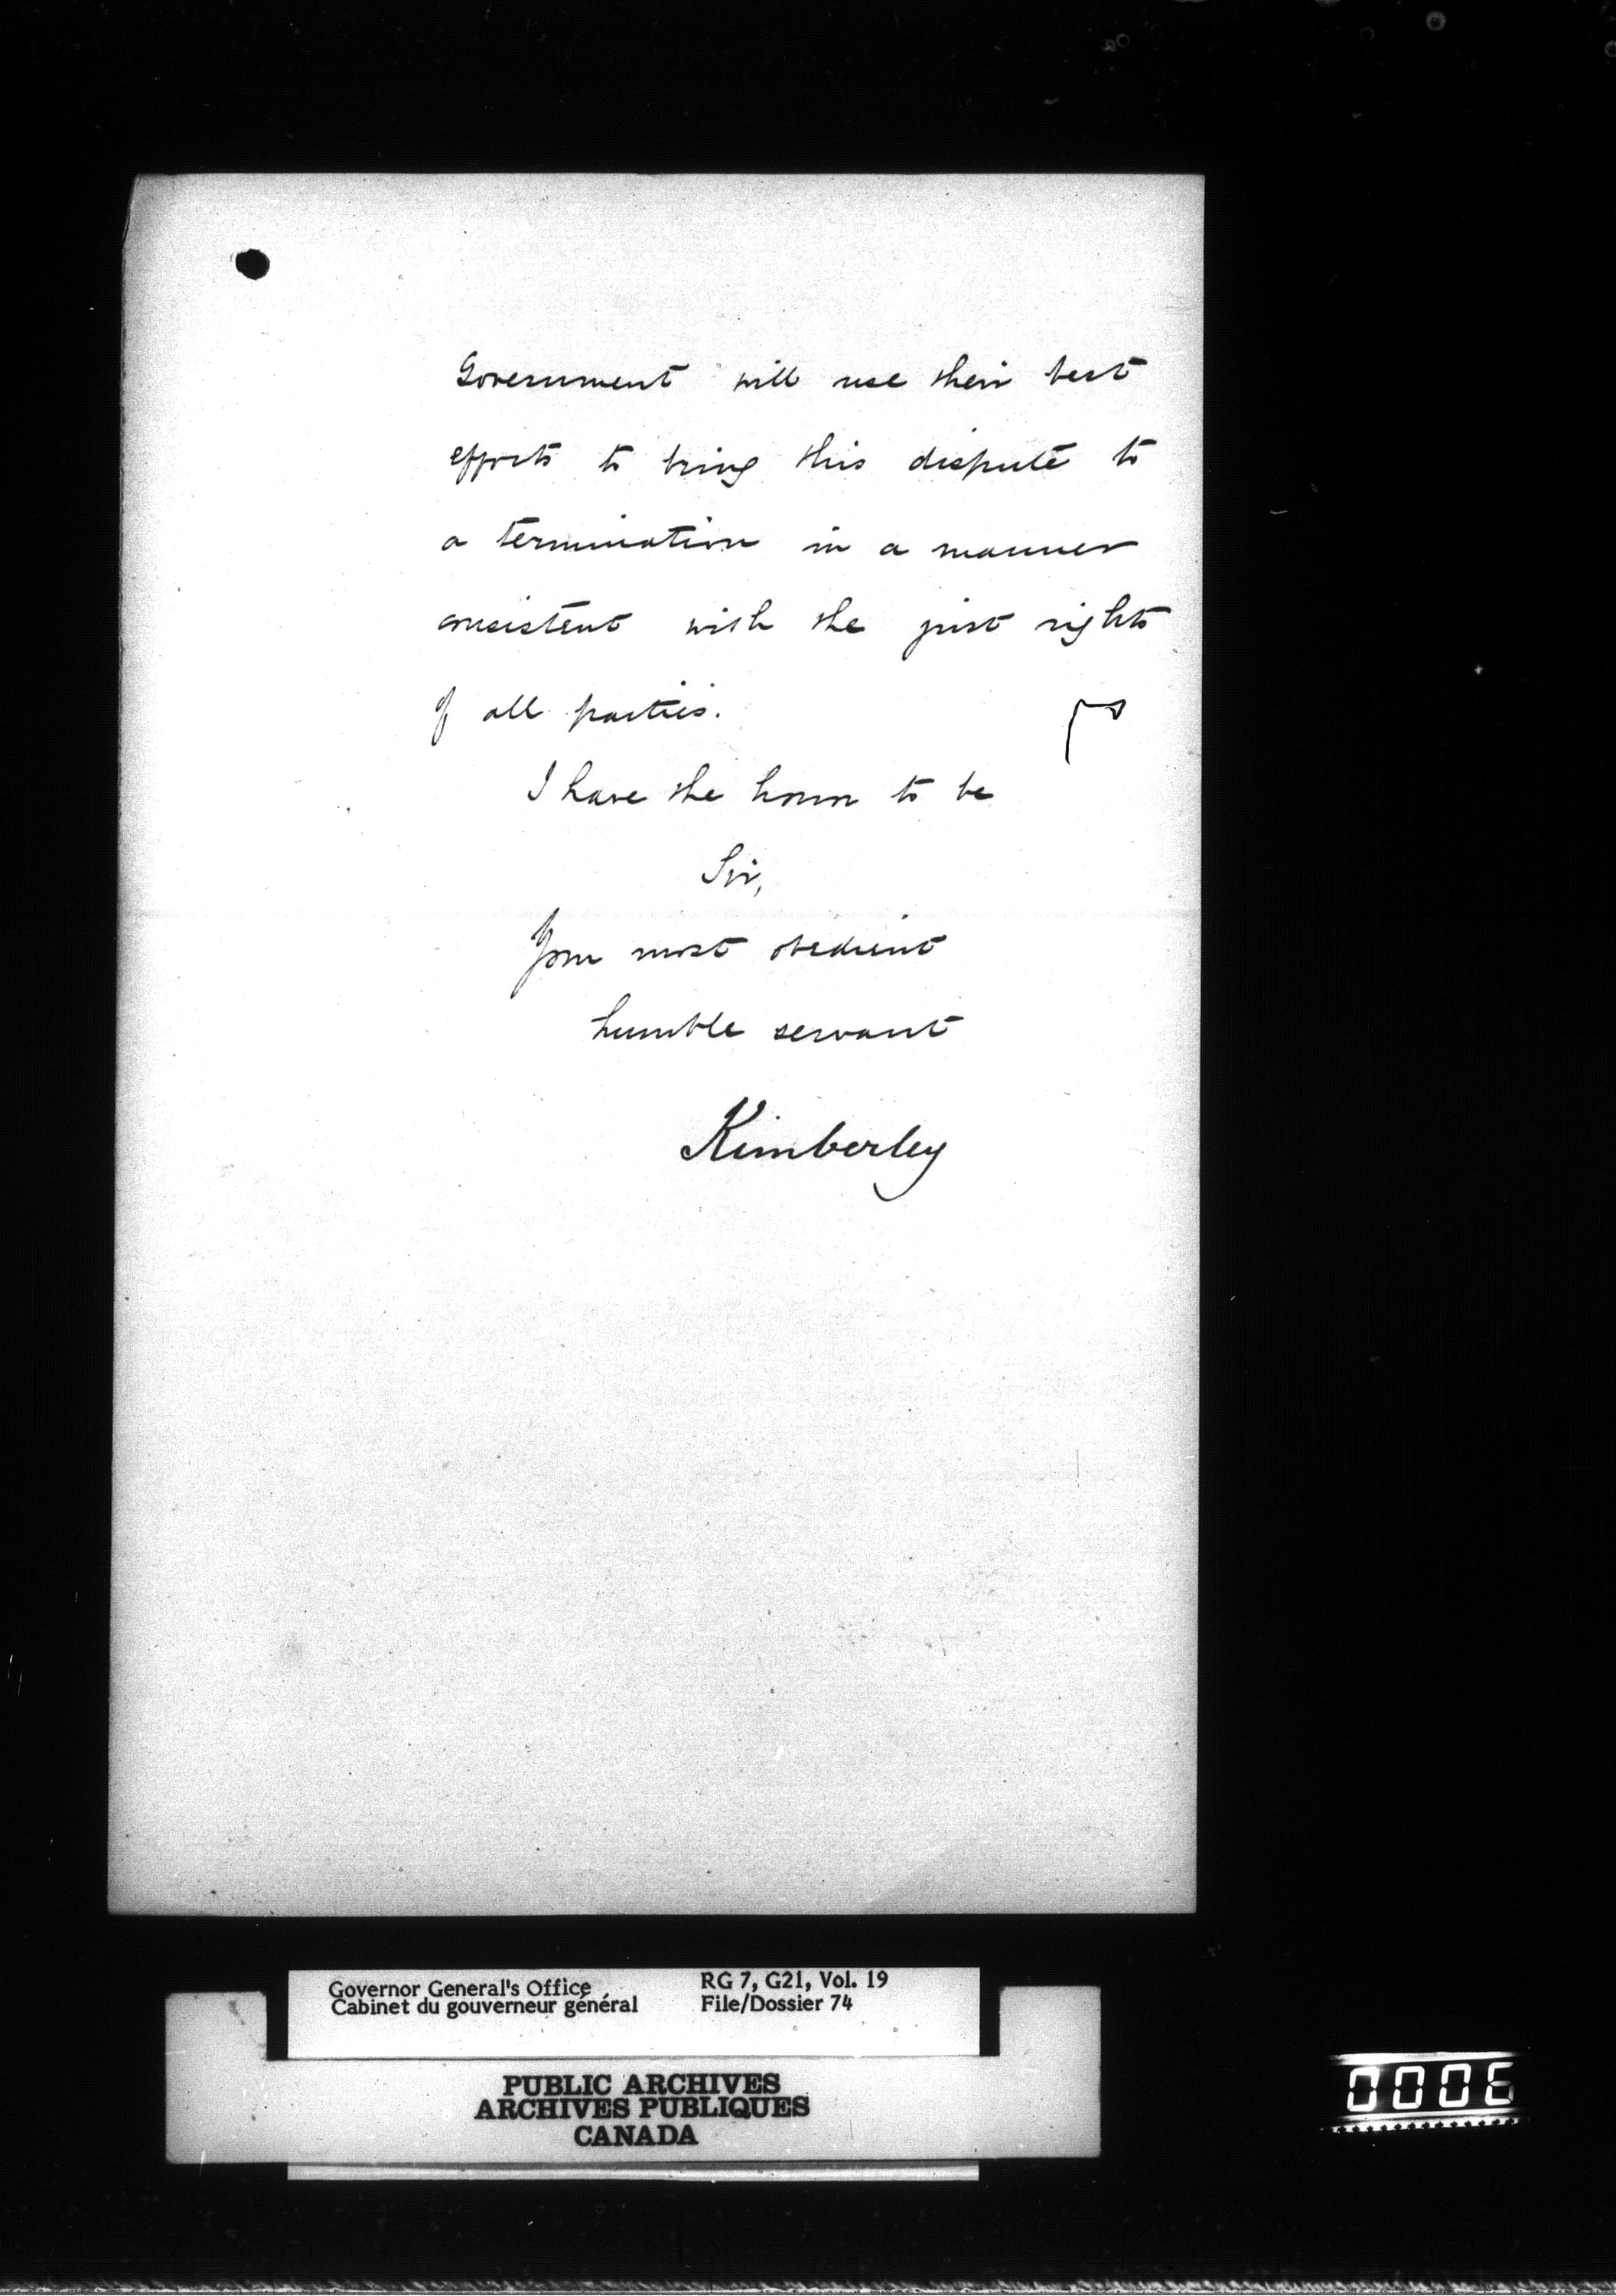 Government will use their best
efforts to bring this dispute to
a termination in a manner
consistent with the just rights
of all parties.
I have the honor to be
Sir,
Your most obedient
humble servant
Kimberley
Governor General's Office
Cabinet du gouverneur général
RG 7, G21, Vol. 19
File/Dossier 74
PUBLIC ARCHIVES
ARCHIVES PUBLIQUES
CANADA